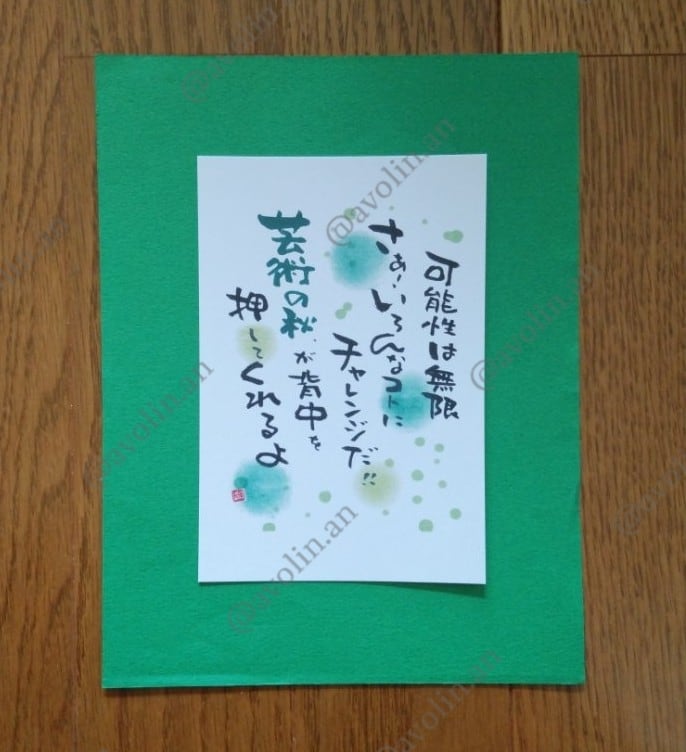 可能性は無限
さぁ!いろんなコトに
チャレンジだ!!
芸術の秋が背中を
押してくれるよ
@avolin.an
@avolin.an
@avolin.an
@avolin.an
@avolin.an
@avolin.an